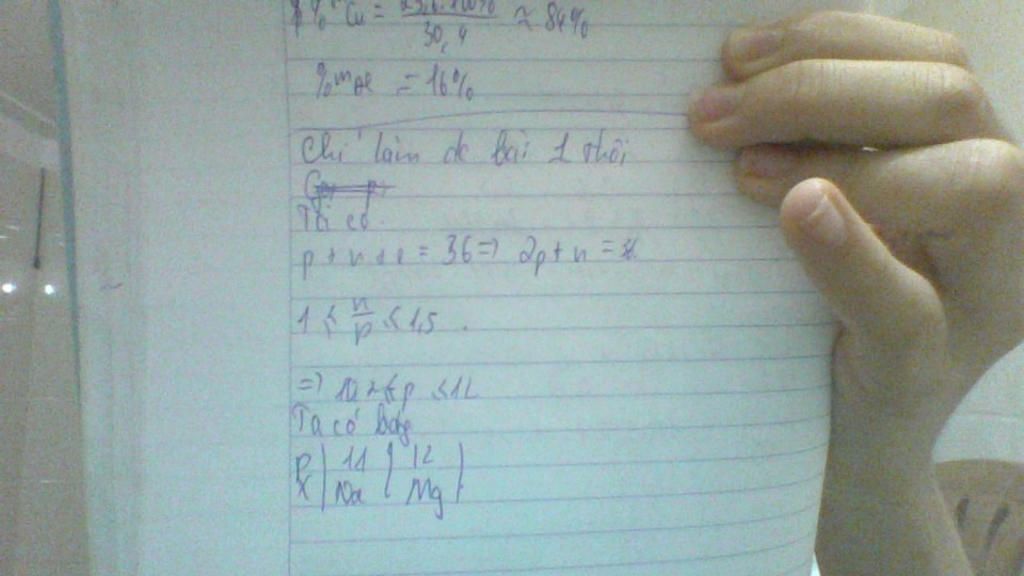 % Cu = 25,6.100% / 30,4 ≈ 84%
%mAl = 16%
Chỉ làm dc bài 1 thôi
Ta có
p + n + e = 36 => 2p + n = 36
1 ≤ n/p ≤ 1,5
=> 10, ≤ p ≤ 12
Ta có bảng
p | 11 | 12 |
X | Na | Mg |